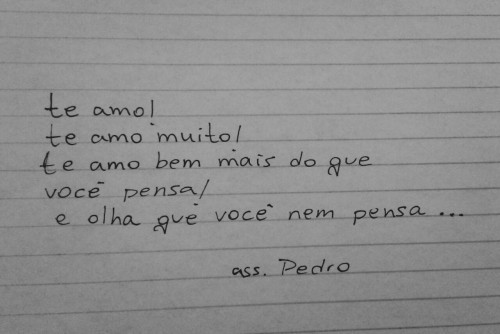 te amo!
te amo muito!
te amo bem mais do que
você pensa!
e olha que você nem pensa ...
ass. Pedro